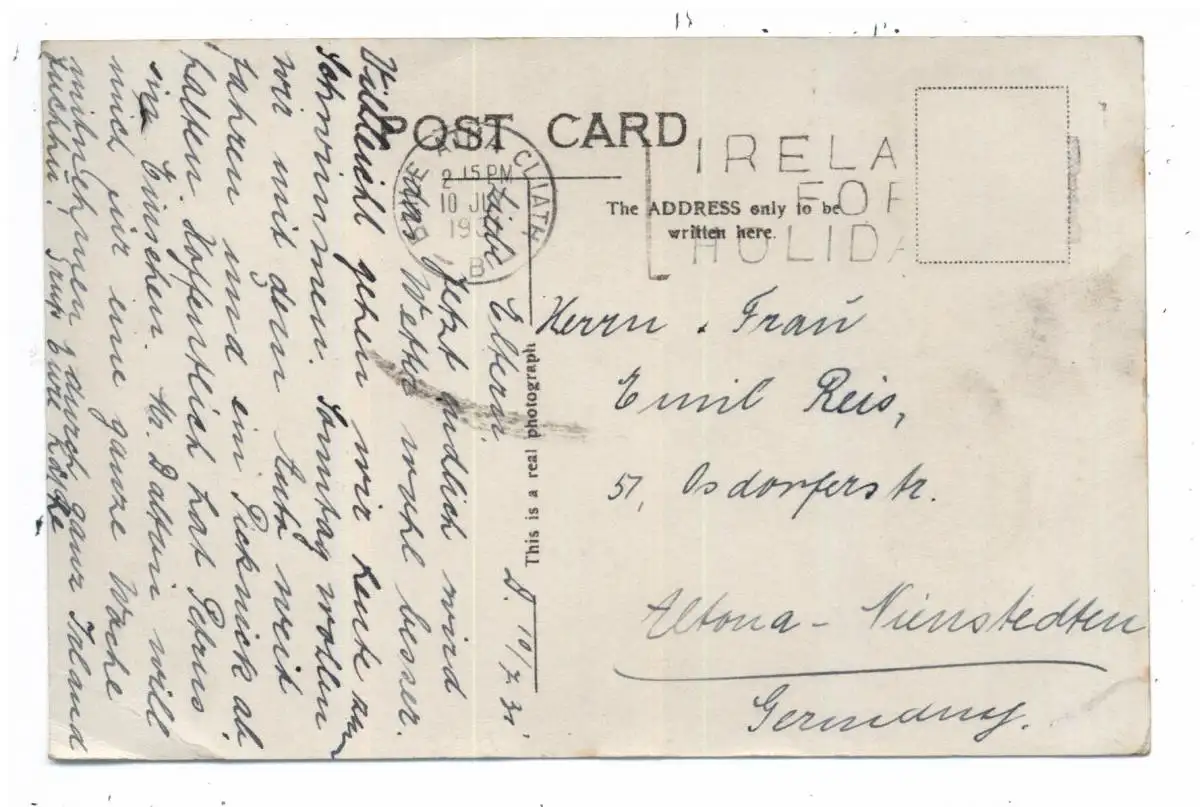 POST CARD
The ADDRESS only to be
written here.
This is a real photograph
CLIATH
2 15 PM
10 JUL
193
B
IRELA
FOR
HOLIDA
D. 10/7 31
Liebe Eltern!
Jetzt endlich wird
das Wetter wohl besser.
Vielleicht gehen wir heute zum
Schwimmen. Sonntag wollen
wir mit dem Auto weit
fahren und ein Picknick ab
halten. Hoffentlich hat Petrus
ein Einsehen. Mr. Dalton will
mich für eine ganze Woche
mitnehmen durch ganz Irland
Gruß Eure
Herrn . Frau
Emil Reis,
51, Osdorferstr.
Altona - Nienstedten
Germany.